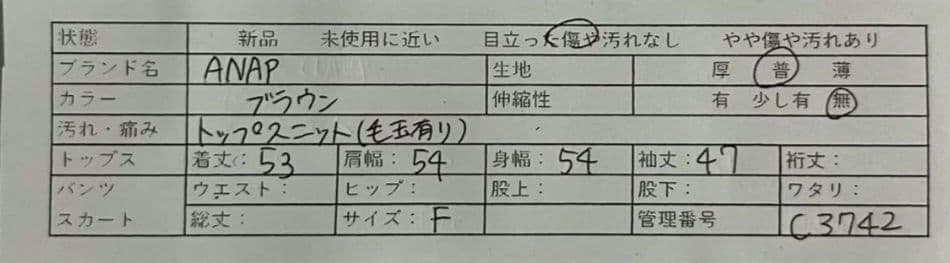 状態 新品 未使用に近い 目立った傷や汚れなし やや傷や汚れあり
ブランド名 ANAP 生地 厚 普 薄
カラー ブラウン 伸縮性 有 少し有 無
汚れ・痛み トップスニット(毛玉有り)
トップス 着丈: 53 肩幅: 54 身幅: 54 袖丈: 47 裄丈:
パンツ ウエスト: ヒップ: 股上: 股下: ワタリ:
スカート 総丈: サイズ: F 管理番号 C3742